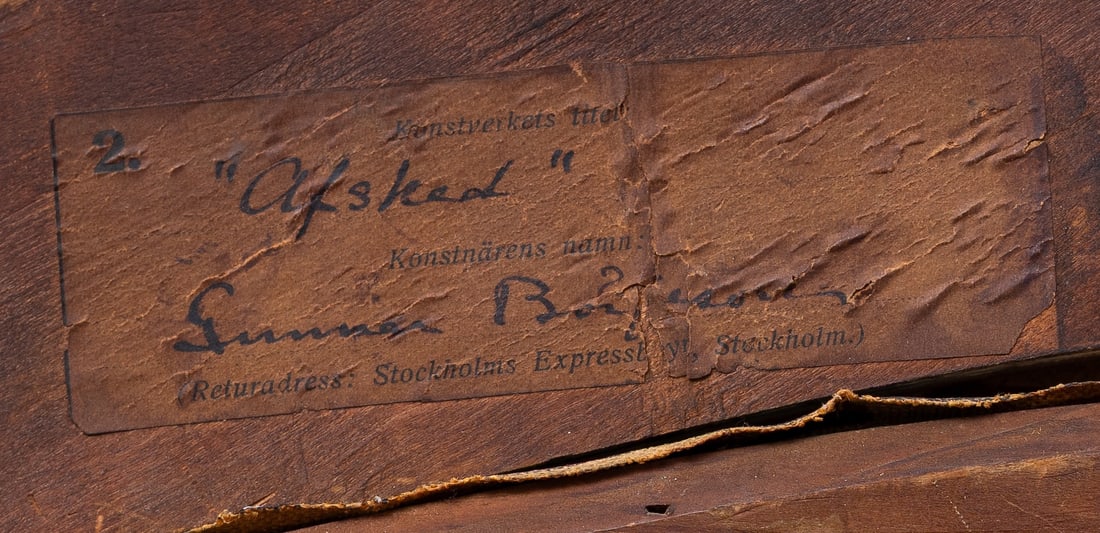 2.
Konstverkets titel
"Afsked"
Konstnärens namn:
Gunnar Börjeson
(Returadress: Stockholms Expressbyrå, Stockholm.)